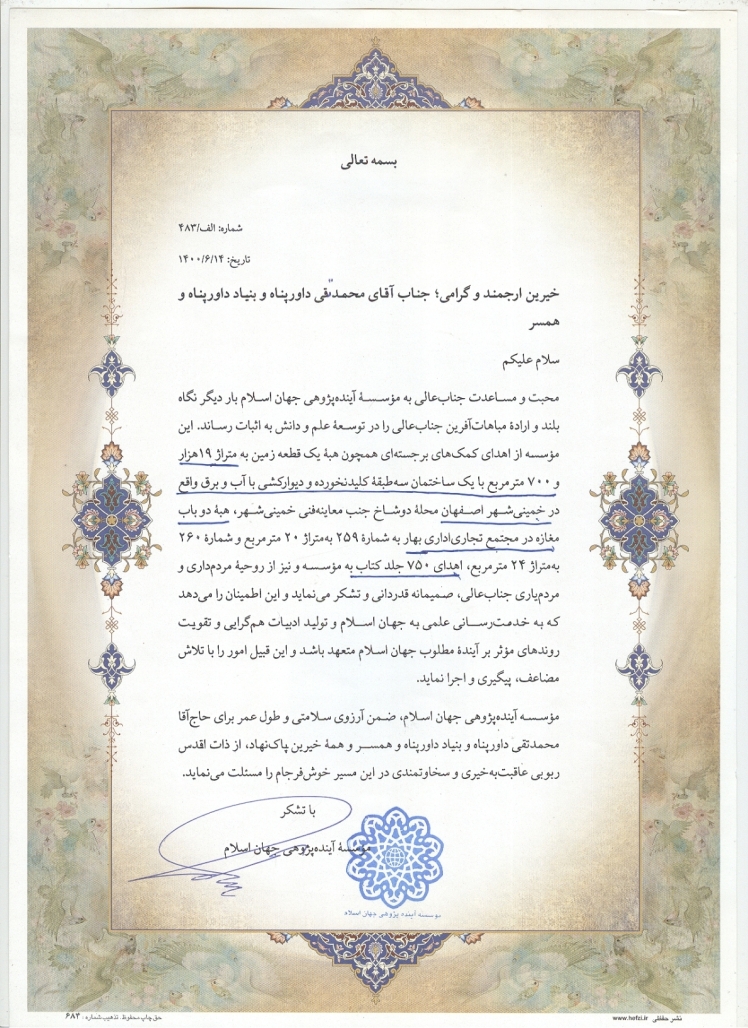 بسمه تعالی
شماره: الف/۴۸۳
تاریخ: ۱۴۰۰/۶/۱۴
خیرین ارجمند و گرامی؛ جناب آقای محمدتقی داورپناه و بنیاد داورپناه و
همسر
سلام علیکم
محبت و مساعدت جناب‌عالی به مؤسسهٔ آینده‌پژوهی جهان اسلام بار دیگر نگاه
بلند و ارادهٔ مباهات‌آفرین جناب‌عالی را در توسعهٔ علم و دانش به اثبات رساند. این
مؤسسه از اهدای کمک‌های برجسته‌ای همچون هبهٔ یک قطعه زمین به متراژ ۱۹هزار
و ۷۰۰ مترمربع با یک ساختمان سه‌طبقهٔ کلیدنخورده و دیوارکشی با آب و برق واقع
در خمینی‌شهر اصفهان محلهٔ دوشاخ جنب معاینه‌فنی خمینی‌شهر، هبهٔ دو باب
مغازه در مجتمع تجاری‌اداری بهار به شمارهٔ ۲۵۹ به‌متراژ ۲۰ مترمربع و شمارهٔ ۲۶۰
به‌متراژ ۲۴ مترمربع، اهدای ۷۵۰ جلد کتاب به مؤسسه و نیز از روحیهٔ مردم‌داری و
مردم‌یاری جناب‌عالی، صمیمانه قدردانی و تشکر می‌نماید و این اطمینان را می‌دهد
که به خدمت‌رسانی علمی به جهان اسلام و تولید ادبیات هم‌گرایی و تقویت
روندهای مؤثر بر آیندهٔ مطلوب جهان اسلام متعهد باشد و این قبیل امور را با تلاش
مضاعف، پیگیری و اجرا نماید.
مؤسسه آینده‌پژوهی جهان اسلام، ضمن آرزوی سلامتی و طول عمر برای حاج‌آقا
محمدتقی داورپناه و بنیاد داورپناه و همسر و همهٔ خیرین پاک‌نهاد، از ذات اقدس
ربوبی عاقبت‌به‌خیری و سخاوتمندی در این مسیر خوش‌فرجام را مسئلت می‌نماید.
با تشکر
مؤسسهٔ آینده‌پژوهی جهان اسلام
موسسه آینده پژوهی جهان اسلام
نشر حفظی www.hefzi.ir
حق چاپ محفوظ. تذهیب شماره: ۶۸۳